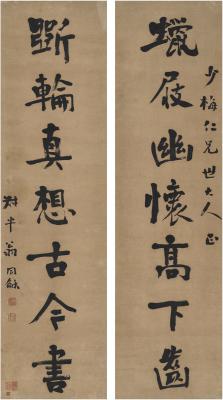 少梅仁兄世大人正
蠟屐幽懷高下齒
斲輪真想古今書
尌平翁同龢